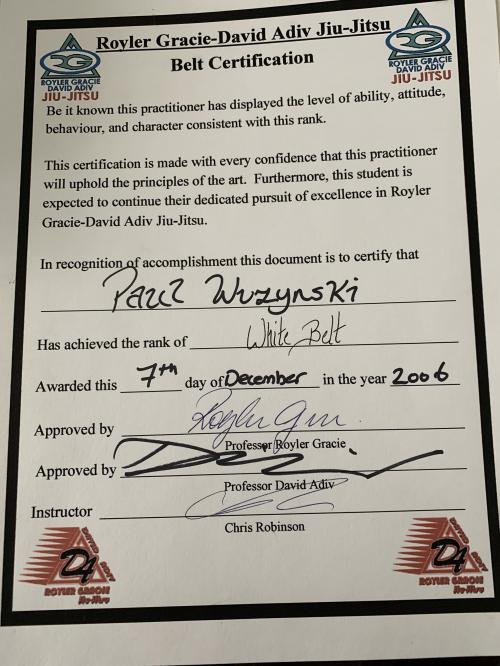 Royler Gracie-David Adiv Jiu-Jitsu
Belt Certification
ROYLER GRACIE
DAVID ADIV
JIU-JITSU
ROYLER GRACIE
DAVID ADIV
JIU-JITSU
Be it known this practitioner has displayed the level of ability, attitude,
behaviour, and character consistent with this rank.
This certification is made with every confidence that this practitioner
will uphold the principles of the art. Furthermore, this student is
expected to continue their dedicated pursuit of excellence in Royler
Gracie-David Adiv Jiu-Jitsu.
In recognition of accomplishment this document is to certify that
Wuzynski
Has achieved the rank of White Belt
Awarded this 7th day of December in the year 2006
Approved by
Professor Royler Gracie
Approved by
Professor David Adiv
Instructor
Chris Robinson
DAVID ADIV
D4
ROYLER GRACIE
Jiu-Jitsu
DAVID ADIV
D4
ROYLER GRACIE
Jiu-Jitsu